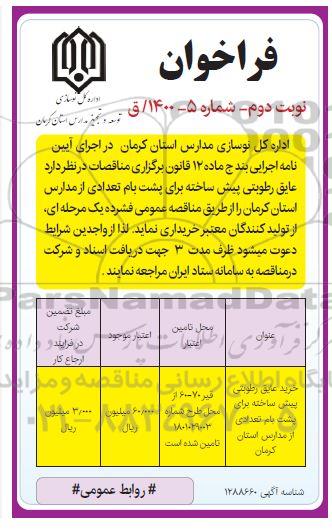 فراخوان
اداره کل نوسازی
توسعه و تجهیز مدارس استان کرمان
نوبت دوم- شماره ۵- ۱۴۰۰/ ق
اداره کل نوسازی مدارس استان کرمان در اجرای آیین
نامه اجرایی بند ج ماده ۱۲ قانون برگزاری مناقصات در نظر دارد
عایق رطوبتی پیش ساخته برای پشت بام تعدادی از مدارس
استان کرمان را از طریق مناقصه عمومی فشرده یک مرحله ای،
از تولید کنندگان معتبر خریداری نماید. لذا از واجدین شرایط
دعوت میشود ظرف مدت ۳ جهت دریافت اسناد و شرکت
در مناقصه به سامانه ستاد ایران مراجعه نمایند.
عنوان
محل تامین
اعتبار
اعتبار موجود
مبلغ تضمین
شرکت
در فرایند
ارجاع کار
خرید عایق رطوبتی
پیش ساخته برای
پشت بام تعدادی
از مدارس استان
کرمان
قیر ۷۰-۶۰ از
محل طرح شماره
۱۸۰۱۰۲۹۰۰۳
تامین شده است
۶۰٫۰۰۰ میلیون
ریال
۳٫۰۰۰ میلیون
ریال
شناسه آگهی ۱۲۸۸۶۶۰
# روابط عمومی#
ParsNamadData